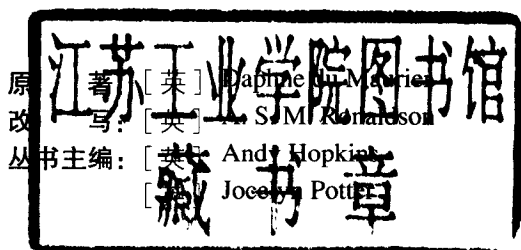 江苏工业学院图书馆
藏书章
原 著 [英] Daphne du Maurier
改 写: [英] A. S. M. Ronaldson
丛书主编: [英] Andy Hopkins
[英] Jocelyn Potter